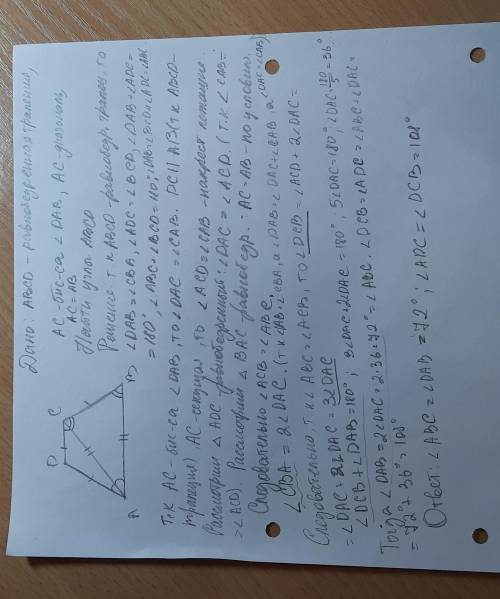 Дано: ABCD - равнобедренная трапеция,
AC - бис-са ∠DAB, AC - диагональ,
AC = AB
Найти углы ABCD
Решение: т.к ABCD - равнобедр. трапец., то
∠DAB = ∠CBA, ∠ADC = ∠BCD, ∠DAB + ∠ADC =
= 180°, ∠ABC + ∠BCD = 180°
D
C
A
B
Т.к AC - бис-са ∠DAB, то ∠DAC = ∠CAB. DC || AB (т.к ABCD -
трапеция) AC - секущая, то ∠ACD = ∠CAB - накрест лежащие.
Рассмотрим △ ADC - равнобедренный: ∠DAC = ∠ACD. (т.к ∠CAB =
= ∠ACD). Рассмотрим △ BAC - равнобедр. : AC = AB - по условию.
Следовательно ∠ACB = ∠ABC.
∠CBA = 2∠DAC. (т.к ∠DAB = ∠CBA, а ∠DAB = ∠DAC + ∠CAB, а ∠DAC = ∠CAB)
Следовательно, т.к ∠ABC = ∠ACB, то ∠DCB = ∠ACD + 2∠DAC =
= ∠DAC + 2∠DAC = 3∠DAC
∠DCB + ∠DAB = 180°; 3∠DAC + 2∠DAC = 180°; 5∠DAC = 180°; ∠DAC = 180/5 = 36°
Тогда ∠DAB = 2∠DAC = 2·36 = 72° = ∠ABC. ∠DCB = ∠ADC = ∠ABC + ∠DAC =
= 72° + 36° = 108°
Ответ: ∠ABC = ∠DAB = 72°; ∠ADC = ∠DCB = 108°